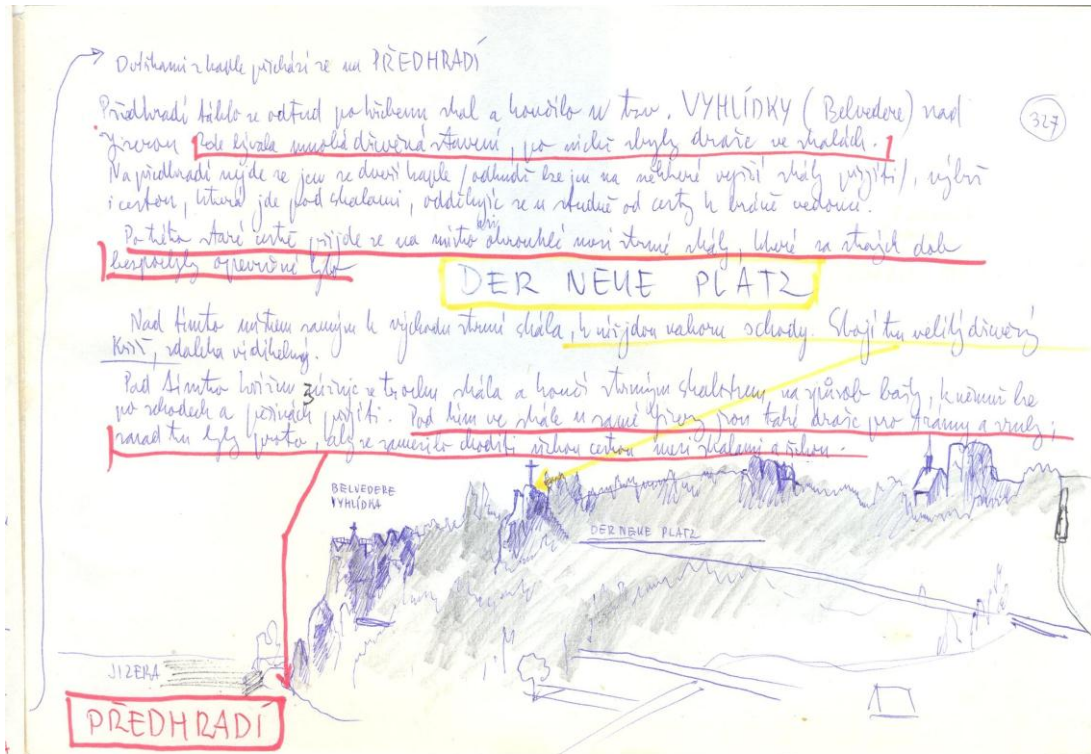 Dvířkami z kaple přichází se na PŘEDHRADÍ
Předhradí táhlo se odtud po hřebenu skal a končilo u tzv. VYHLÍDKY (Belvedere) nad
327
Jizerou Zde bývala mnohá dřevěná stavení, po nichž zbyly draže ve skalách.
Na předhradí nejde se jen ze dveří kaple /odkudž lze jen na některé vyšší skály přijíti/, nýbrž
i cestou, která jde pod skalami, oddělujíc se u studně od cesty k bráně vedoucí.
Po této staré cestě přijde se na místo okrouhlé mezi strmé skály, které za starých dob
bezpochyby opevněné bylo
DER NEUE PLATZ
Nad tímto místem samým k východu strmí skála, k níž jdou nahoru schody. Stojí tu veliký dřevěný
Kříž, zdaleka viditelný.
Pod tímto křížem zúžuje se trochu skála a končí strmým skaliskem na způsob bašty, k němuž lze
po schodech a pěšinách přijíti. Pod ním ve skále u samé Jizery jsou také draže pro trámy a sruby;
snad tu byly proto, aby se zamezilo choditi úzkou cestou mezi skalami a řekou.
BELVEDERE
VYHLÍDKA
DER NEUE PLATZ
JIZERA
PŘEDHRADÍ